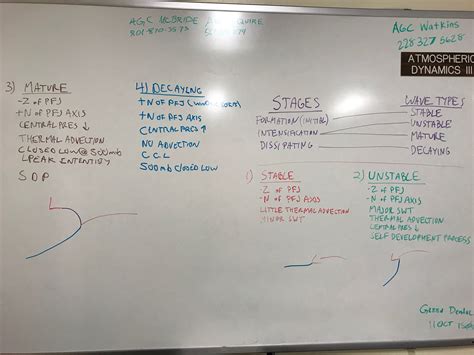 AGC MCBRIDE
AGC Watkins
228 327 5628
ATMOSPHERIC
DYNAMICS III
3) MATURE
-Z of PFJ
+N of PFJ AXIS
CENTRAL PRES ↓
THERMAL ADVECTION
CLOSED LOW @ 500mb
PEAK INTENSITY
SDP
4) DECAYING
+N of PFJ
+N of PFJ AXIS
CENTRAL PRES ↑
NO ADVECTION
CCL
500mb CLOSED LOW
STAGES
FORMATION (INITIAL)
INTENSIFICATION
DISSIPATING
WAVE TYPES
STABLE
UNSTABLE
MATURE
DECAYING
1) STABLE
-Z of PFJ
-N of PFJ AXIS
LITTLE THERMAL ADVECTION
MINOR SWT
2) UNSTABLE
-Z of PFJ
-N of PFJ AXIS
MAJOR SWT
THERMAL ADVECTION
CENTRAL PRES ↓
SELF DEVELOPMENT PROCESS
Green Dental
11 OCT